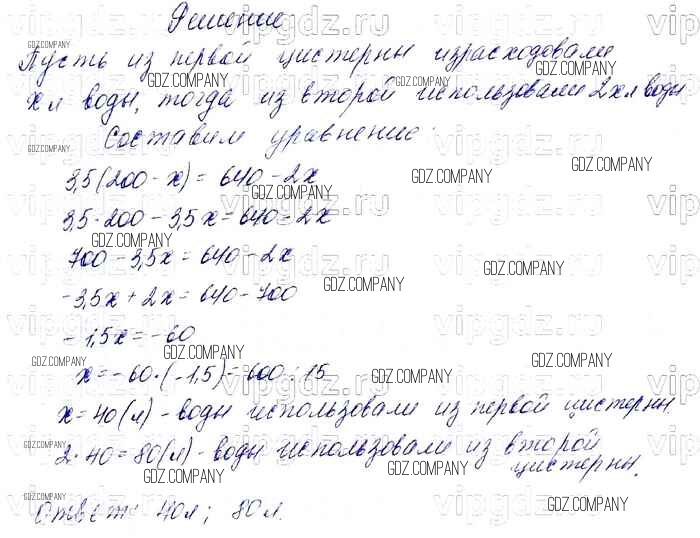 Решение
Пусть из первой цистерны израсходовали
х л воды, тогда из второй использовали 2х л воды
Составим уравнение:
3,5(200 - х) = 640 - 2х
3,5 · 200 - 3,5х = 640 - 2х
700 - 3,5х = 640 - 2х
-3,5х + 2х = 640 - 700
-1,5х = -60
х = -60 · (-1,5) = 600 : 15
х = 40 (л) - воды использовали из первой цистерны.
2 · 40 = 80 (л) - воды использовали из второй
цистерны.
Ответ: 40 л; 80 л.
GDZ.COMPANY
vipgdz.ru